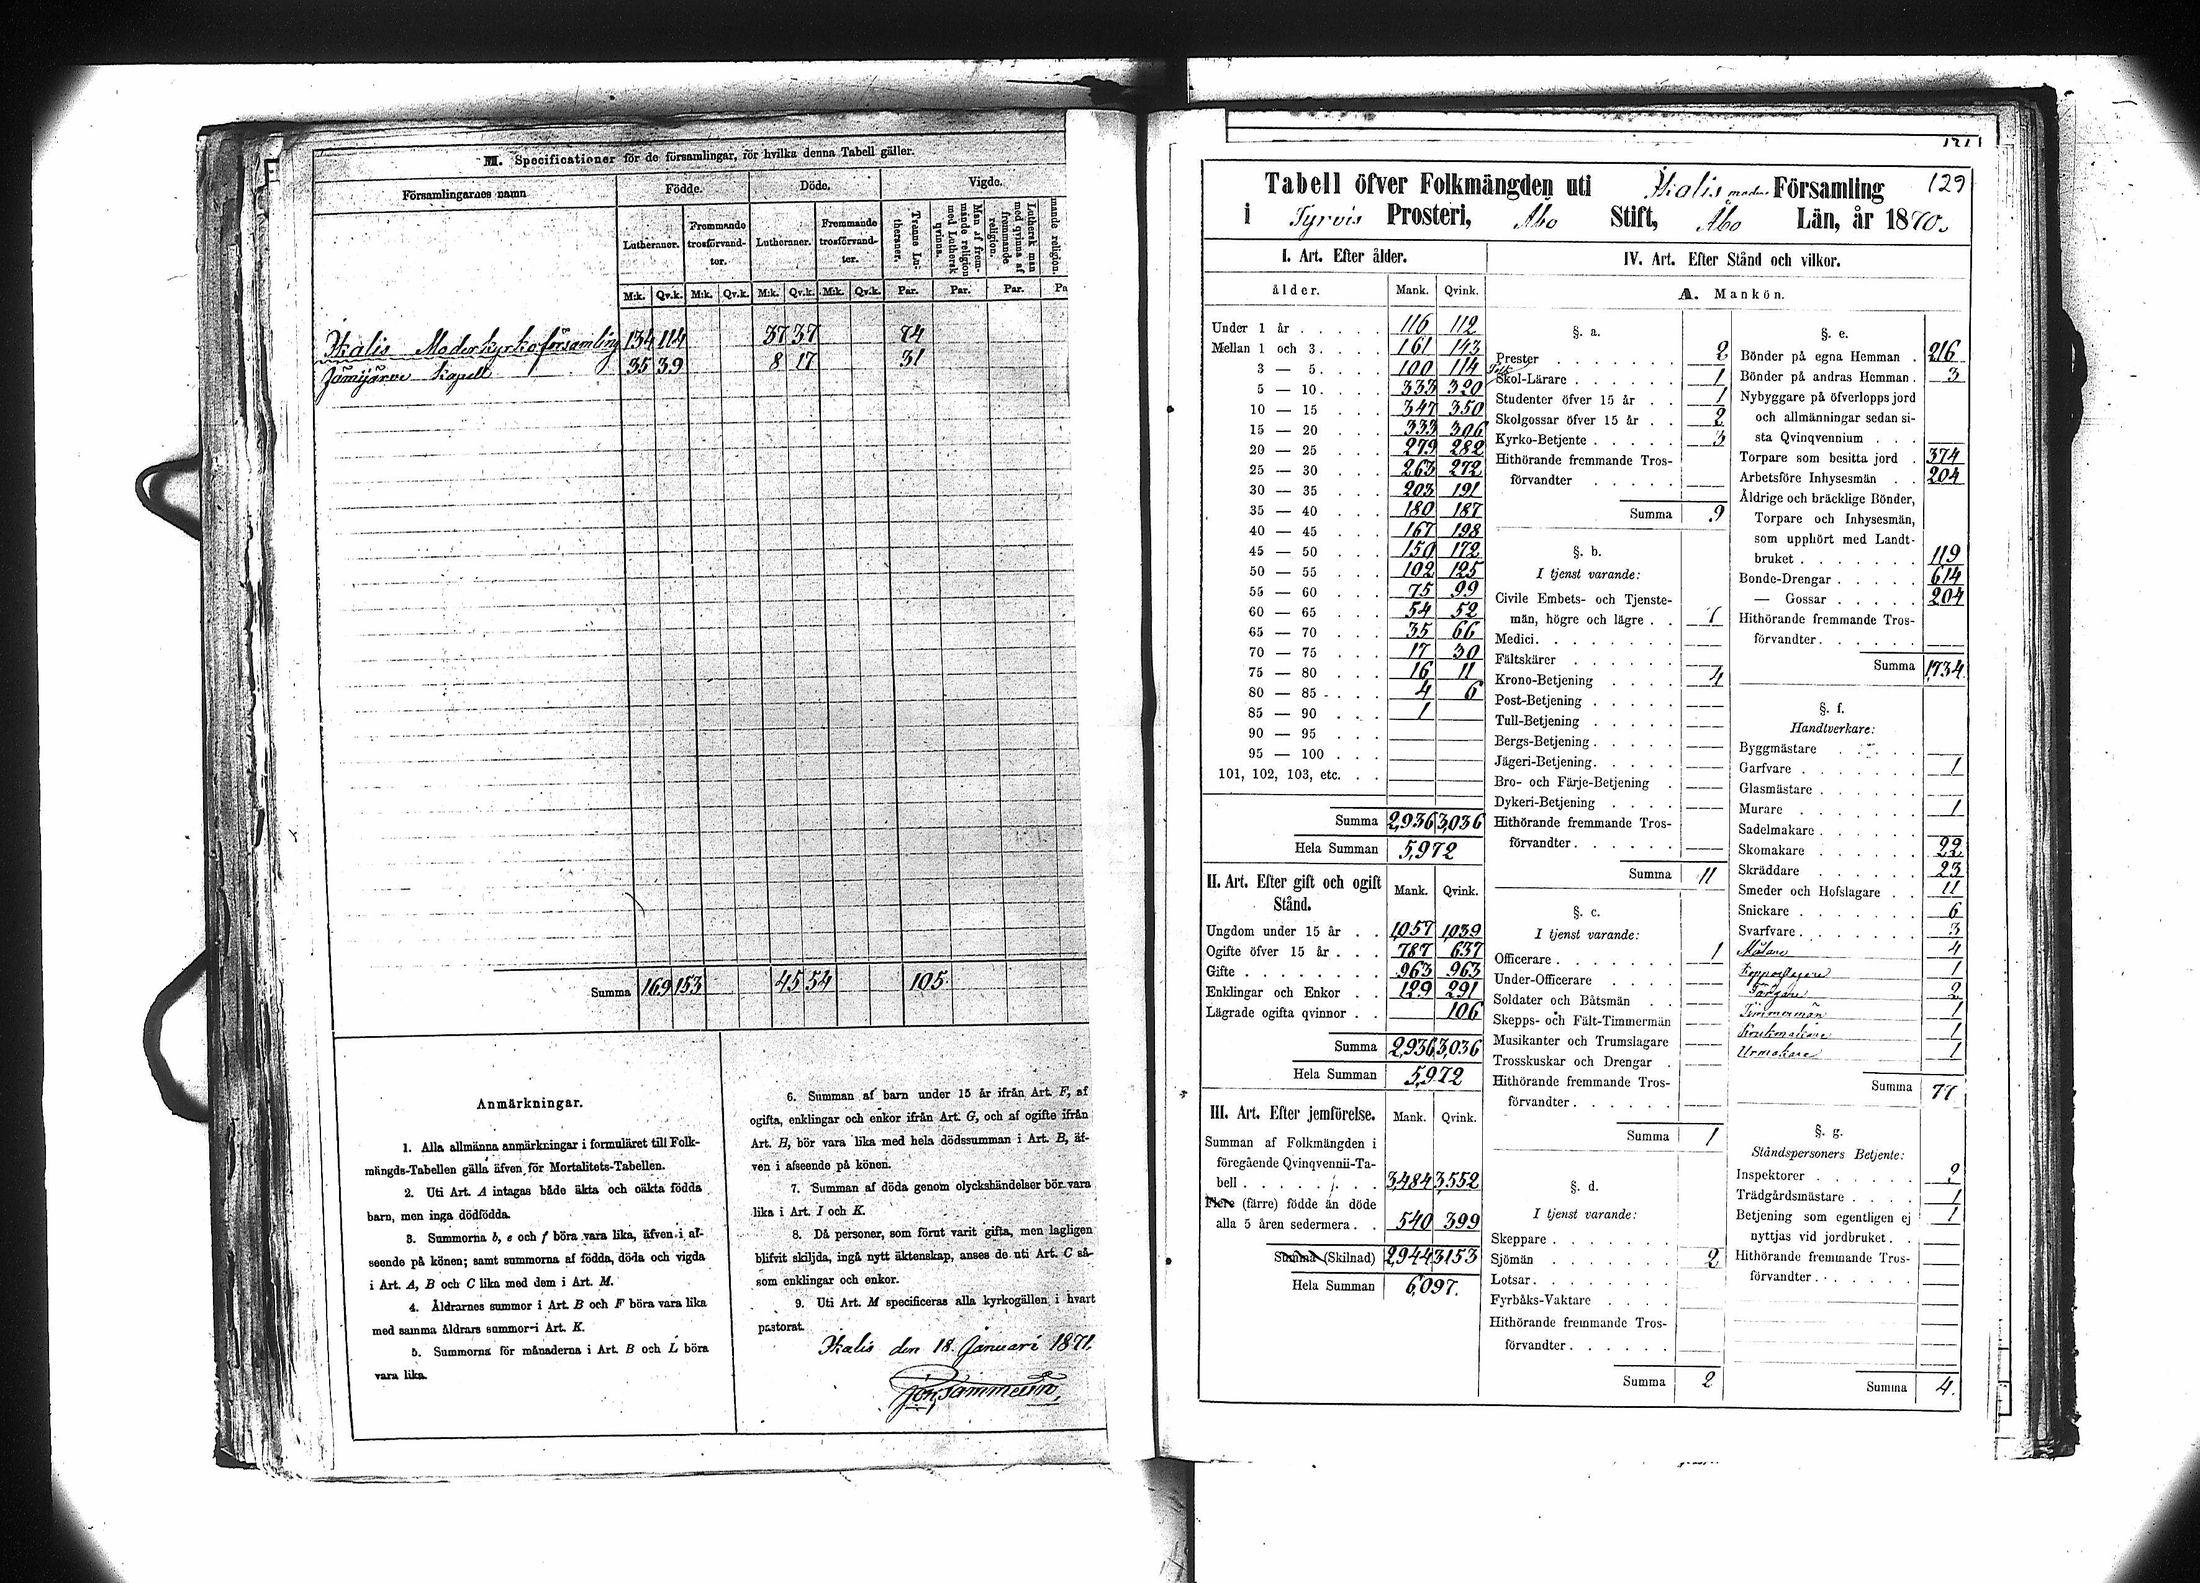 M. Specificationer för de församlingar, för hvilka denna Tabell gäller.
Församlingarnes namn
Födde.
Döde.
Vigde.
Lutheraner.
Fremmande trosförvandter.
Lutheraner.
Fremmande trosförvandter.
Trenne Lutheraner.
Män af fremmande religion med Luthersk qvinna.
Luthersk man med qvinna af fremmande religion.
mande religion.
M.k. Qv.k. M.k. Qv.k. M.k. Qv.k. M.k. Qv.k. Par. Par. Par. Pa
Ikalis Moderkyrkoförsamling 134 114 37 37 74
Jämijärvi Kapell 35 39 8 17 31
Summa 169 153 45 54 105
Anmärkningar.
1. Alla allmänna anmärkningar i formuläret till Folk-
mängds-Tabellen gälla äfven för Mortalitets-Tabellen.
2. Uti Art. A intagas både äkta och oäkta födda
barn, men inga dödfödda.
3. Summorna b, e och f böra vara lika, äfven i af-
seende på könen; samt summorna af födda, döda och vigda
i Art. A, B och C lika med dem i Art. M.
4. Åldrarnes summor i Art. B och F böra vara lika
med samma åldrars summor i Art. K.
5. Summorna för månaderna i Art. B och L böra
vara lika.
6. Summan af barn under 15 år ifrån Art. F, af
ogifta, enklingar och enkor ifrån Art. G, och af ogifte ifrån
Art. H, bör vara lika med hela dödssumman i Art. B, äf-
ven i afseende på könen.
7. Summan af döda genom olyckshändelser bör vara
lika i Art. I och K.
8. Då personer, som förut varit gifta, men lagligen
blifvit skiljda, ingå nytt äktenskap, anses de uti Art. C så-
som enklingar och enkor.
9. Uti Art. M specificeras alla kyrkogällen i hvart
pastorat.
Ikalis den 18. Januari 1871.
129
Tabell öfver Folkmängden uti Ikalis moder Församling
i Tyrvis Prosteri, Åbo Stift, Åbo Län, år 1870.
I. Art. Efter ålder.
ålder. Mank. Qvink.
Under 1 år 116 112
Mellan 1 och 3 161 143
3 — 5 100 114
5 — 10 333 320
10 — 15 347 350
15 — 20 333 306
20 — 25 279 282
25 — 30 263 272
30 — 35 203 191
35 — 40 180 187
40 — 45 167 198
45 — 50 150 172
50 — 55 102 125
55 — 60 75 99
60 — 65 54 52
65 — 70 35 66
70 — 75 17 30
75 — 80 16 11
80 — 85 4 6
85 — 90 1
90 — 95
95 — 100
101, 102, 103, etc.
Summa 2,936 3,036
Hela Summan 5,972
II. Art. Efter gift och ogift Stånd. Mank. Qvink.
Ungdom under 15 år 1,057 1,039
Ogifte öfver 15 år 787 637
Gifte 963 963
Enklingar och Enkor 129 291
Lägrade ogifta qvinnor 106
Summa 2,936 3,036
Hela Summan 5,972
III. Art. Efter jemförelse. Mank. Qvink.
Summan af Folkmängden i
föregående Qvinqvennii-Ta-
bell 3,484 3,552
Flere (färre) födde än döde
alla 5 åren sedermera 540 399
Summa (Skilnad) 2,944 3,153
Hela Summan 6,097.
IV. Art. Efter Stånd och vilkor.
A. Mankön.
§. a.
Prester 2
Folk Skol-Lärare 1
Studenter öfver 15 år 1
Skolgossar öfver 15 år 2
Kyrko-Betjente 3
Hithörande fremmande Tros-
förvandter
Summa 9
§. b.
I tjenst varande:
Civile Embets- och Tjenste-
män, högre och lägre 7
Medici
Fältskärer
Krono-Betjening 4
Post-Betjening
Tull-Betjening
Bergs-Betjening
Jägeri-Betjening
Bro- och Färje-Betjening
Dykeri-Betjening
Hithörande fremmande Tros-
förvandter
Summa 11
§. c.
I tjenst varande:
Officerare 1
Under-Officerare
Soldater och Båtsmän
Skepps- och Fält-Timmermän
Musikanter och Trumslagare
Trosskuskar och Drengar
Hithörande fremmande Tros-
förvandter
Summa 1
§. d.
I tjenst varande:
Skeppare
Sjömän 2
Lotsar
Fyrbåks-Vaktare
Hithörande fremmande Tros-
förvandter
Summa 2
§. e.
Bönder på egna Hemman 216
Bönder på andras Hemman 3
Nybyggare på öfverlopps jord
och allmänningar sedan si-
sta Qvinqvennium
Torpare som besitta jord 374
Arbetsföre Inhysesmän 204
Åldrige och bräcklige Bönder,
Torpare och Inhysesmän,
som upphört med Landt-
bruket 119
Bonde-Drengar 614
— Gossar 204
Hithörande fremmande Tros-
förvandter
Summa 1,734.
§. f.
Handtverkare:
Byggmästare
Garfvare 1
Glasmästare
Murare 1
Sadelmakare
Skomakare 22
Skräddare 23
Smeder och Hofslagare 11
Snickare 6
Svarfvare 3
Målare 4
Kopparslagare 1
Färgare 2
Timmermän 1
Krukmakare 1
Urmakare 1
Summa 77
§. g.
Ståndspersoners Betjente:
Inspektorer 2
Trädgårdsmästare 1
Betjening som egentligen ej 1
nyttjas vid jordbruket
Hithörande fremmande Tros-
förvandter
Summa 4.